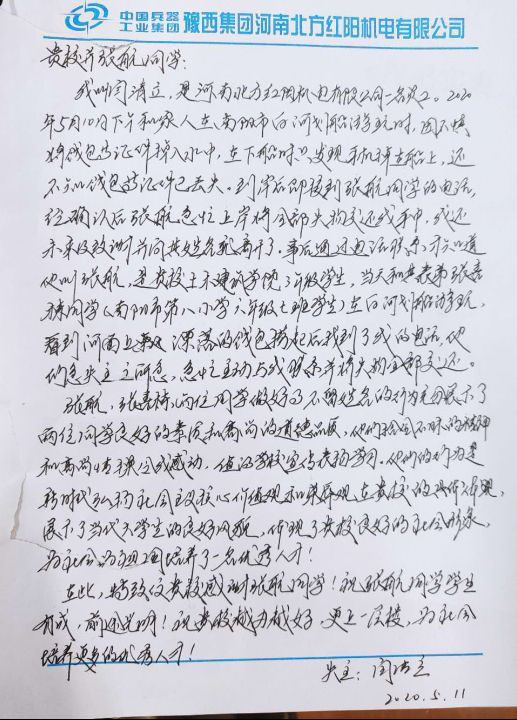 中国兵器
工业集团 豫西集团河南北方红阳机电有限公司
贵校并张航同学:
我叫闫清立,是河南北方红阳机电有限公司一名员工。2020
年5月10日下午和家人在南阳市白河划船游玩时,因不慎
将钱包等证件掉入水中,在下船时只发现手机掉在船上,还
不知钱包等证件已丢失。到岸后即接到张航同学的电话,
经确认后张航急忙上岸将全部失物交还我手中,我还
未来及致谢并问其姓名就离开了。事后通过电话联系,才知道
他叫张航,是贵校土木建筑学院 年级学生,当天和其表弟张嘉
同学(南阳市第八小学六年级七班学生)在白河划船游玩,
看到河面上 漂荡的钱包捞起后找到了我的电话,他
们急失主之所急,急忙主动与我联系并将失物全部交还。
张航,张嘉 两位同学做好事不留姓名的行为充分展示了
两位同学良好的素质和高尚的道德品质,他们拾金不昧的精神
和高尚情操令我感动,值得学校宣传表扬学习,他们的行为是
新时代弘扬社会主义核心价值观和荣辱观在贵校的具体体现,
展示了当代大学生的良好风貌,体现了贵校良好的社会形象,
为社会为祖国培养了一名优秀人才!
在此,特致信贵校感谢张航同学!祝张航同学学业
有成,前途光明!祝贵校越办越好,更上一层楼,为社会
培养更多的优秀人才!
失主:闫清立
2020.5.11